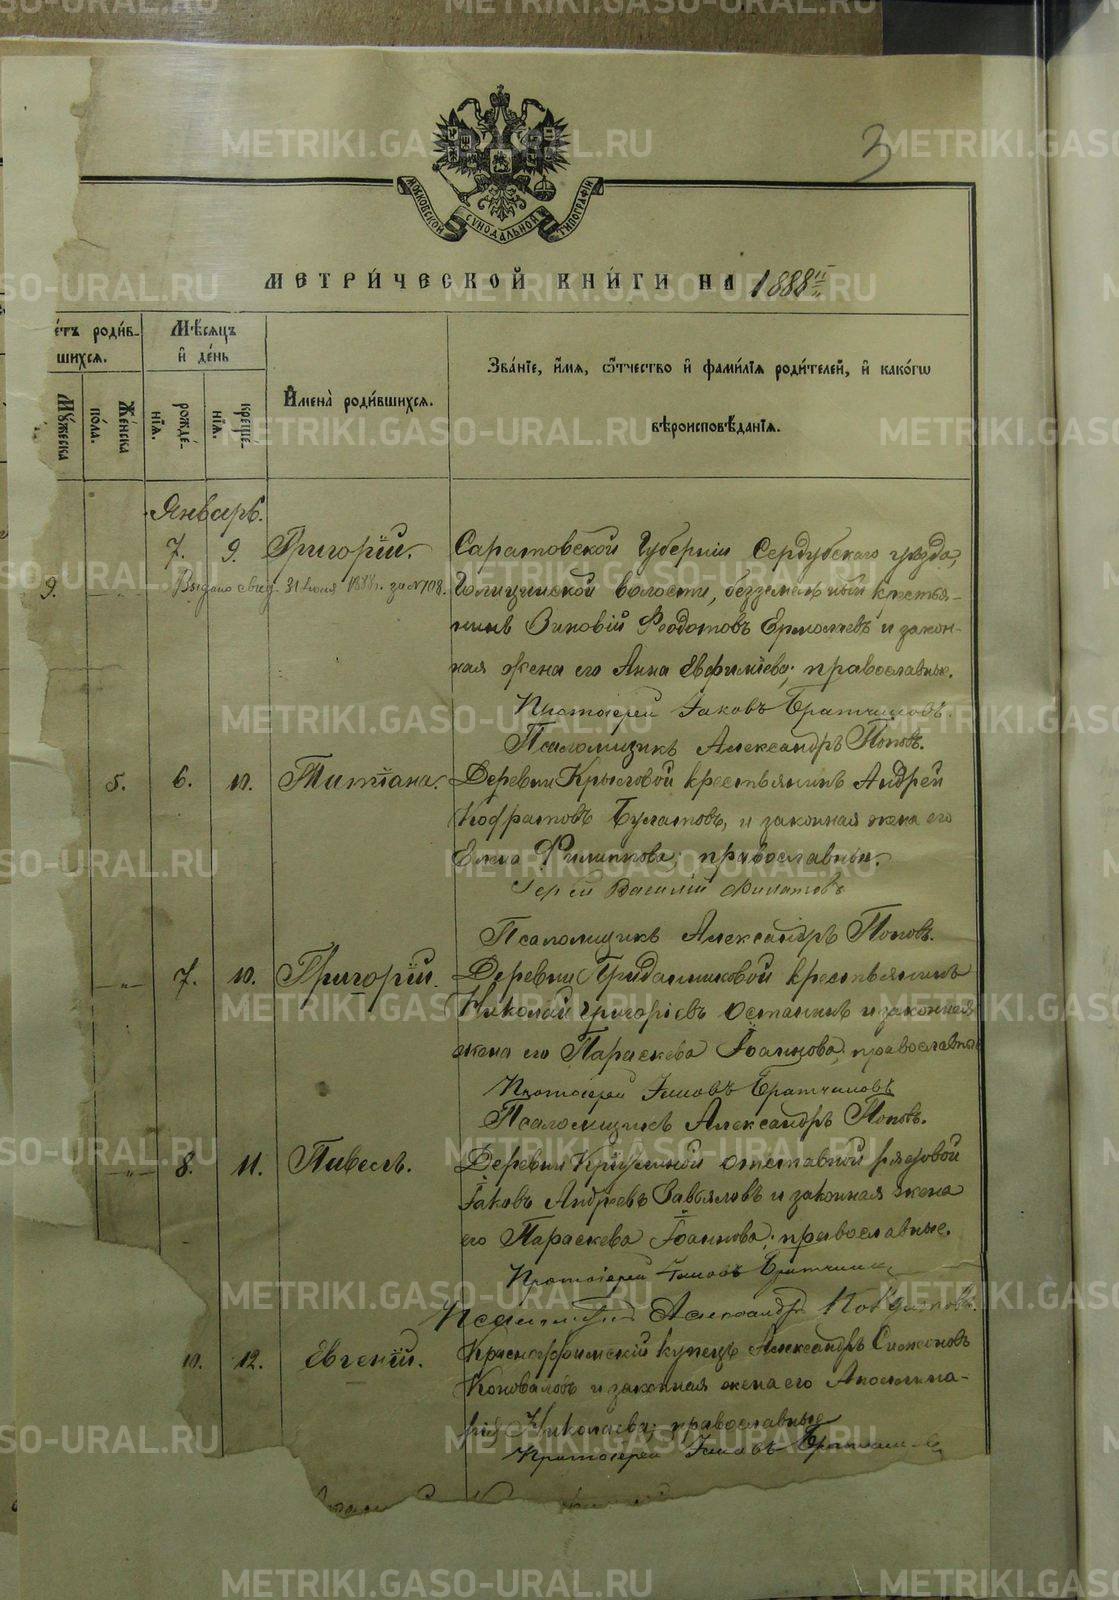 3
МОСКОВСКОЙ СѴНОДАЛЬНОЙ ТИПОГРАФІИ
МЕТРИ́ЧЕСКОЙ КНИ́ГИ НА 1888й
е́тъ роди́в-
шихсѧ.
Мѣ́сѧцъ
и҆ де́нь
И҆мена̀ роди́вшихсѧ.
Зва́нїе, и҆́мѧ, ѻ҆́тчество и҆ фами́лїѧ роди́телей, и҆ како́гѡ
вѣроисповѣ́данїѧ.
Мꙋ́жеска
Же́нска
по́ла.
рожде́-
нїѧ.
креще́-
нїѧ.
Январь.
7. 9. Григорій. Саратовской Губерніи Сердубскаго уѣзда,
9. Выдано свид. 31 Июня 1888г. за №708. Голицинской волости, безземельный крестья-
нинъ Зиновій Ѳеодотовъ Ермолаевъ и закон-
ная жена его Анна Евфиміева; православные.
Протоіерей Іаковъ Братчиковъ.
Псаломщикъ Александръ Поповъ.
5. 6. 10. Татіана. Деревни Крысовой крестьянинъ Андрей
Булатовъ, и законная жена его
Елена Филиппова; православные.
Іерей Василій Филатовъ
Псаломщикъ Александръ Поповъ.
— „ — 7. 10. Григорій. Деревни Приданниковой крестьянинъ
Николай Григорьевъ Останинъ и законная
жена его Параскева Іоаннова; православные
Протоіерей Іаковъ Братчиковъ
Псаломщикъ Александръ Поповъ.
— „ — 8. 11. Павелъ. Деревни отставной рядовой
Іаковъ Андреевъ Завьяловъ и законная жена
его Параскева Іоаннова; православные.
Протоіерей Іаковъ Братчиковъ
Псаломщикъ Александръ
10. 12. Евгеній. Красноуфимскій купецъ Александръ Симеоновъ
Коноваловъ и законная жена его Аполлина-
рія Николаева; православные
Протоіерей Іаковъ Братчиковъ
METRIKI.GASO-URAL.RU